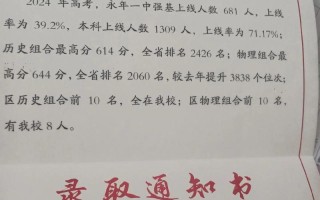 2024 年高考，永年一中强基上线人数 681 人，上线
率为 39.2%，本科上线人数 1309 人，上线率为 71.17%；
历史组合最高分 614 分，全省排名 2426 名；物理组合最
高分 644 分，全省排名 2060 名，较去年提升 3838 个位次；
区历史组合前 10 名，全在我校；区物理组合前 10 名，
有我校 8 人。
录取通知书